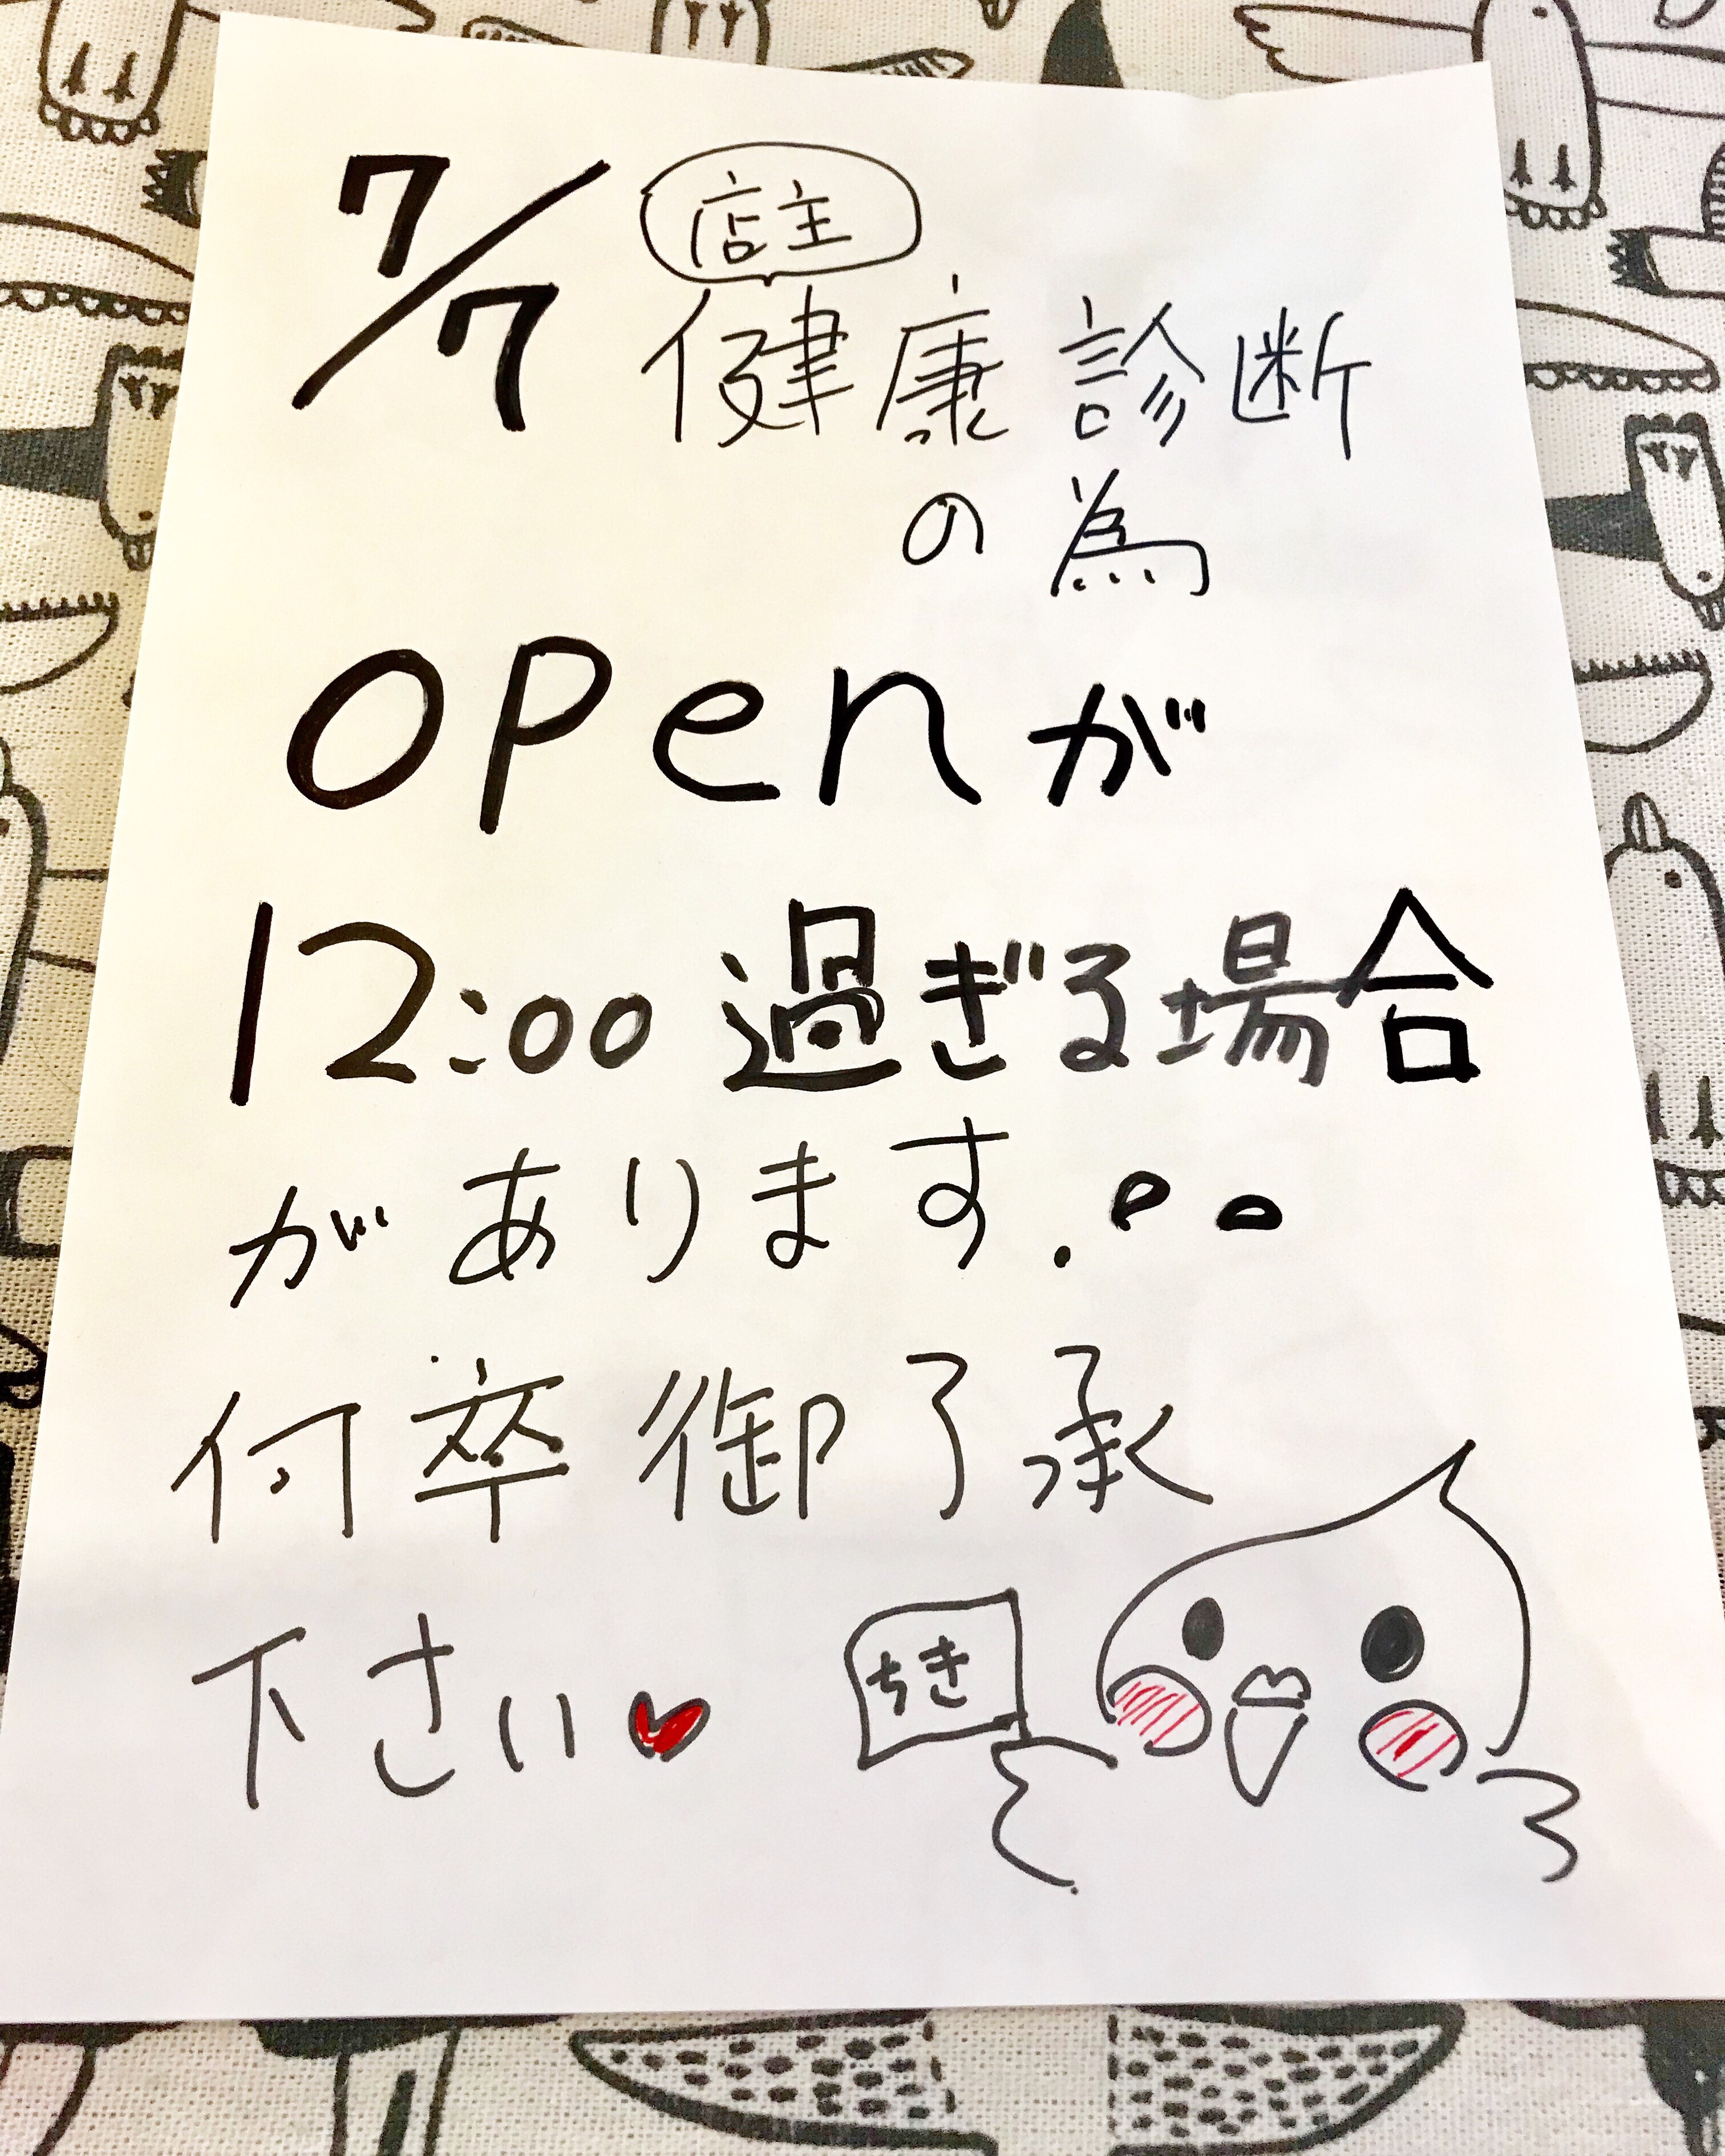 7/7 店主
健康診断
の為
openが
12:00過ぎる場合
があります...
何卒御了承
下さい♥
ちき